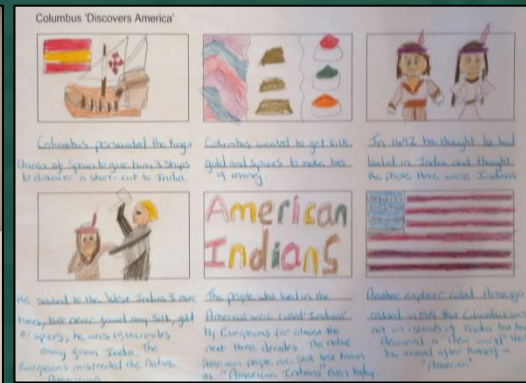 Columbus 'Discovers America'
Columbus persuaded the King +
Queen of Spain to give him 3 ships
to discover a short cut to India.
Columbus wanted to get silk,
gold and spices to make lots
of money.
In 1492 he thought he had
landed in India and thought
the people there were Indians
He sailed to the West Indies 3 more
times, but never found any silk, gold
or spices, he was
away from India. The
Europeans mistreated the Native
Americans
American
Indians
The people who lived in the
Americas were called 'Indians'
by Europeans for almost the
next three The native
American people are still best known
as "American Indians" even today.
Another explorer called Amerigo
in that Columbus was
not on islands of India but had
discovered a "new world" that
he named after himself -
"America"